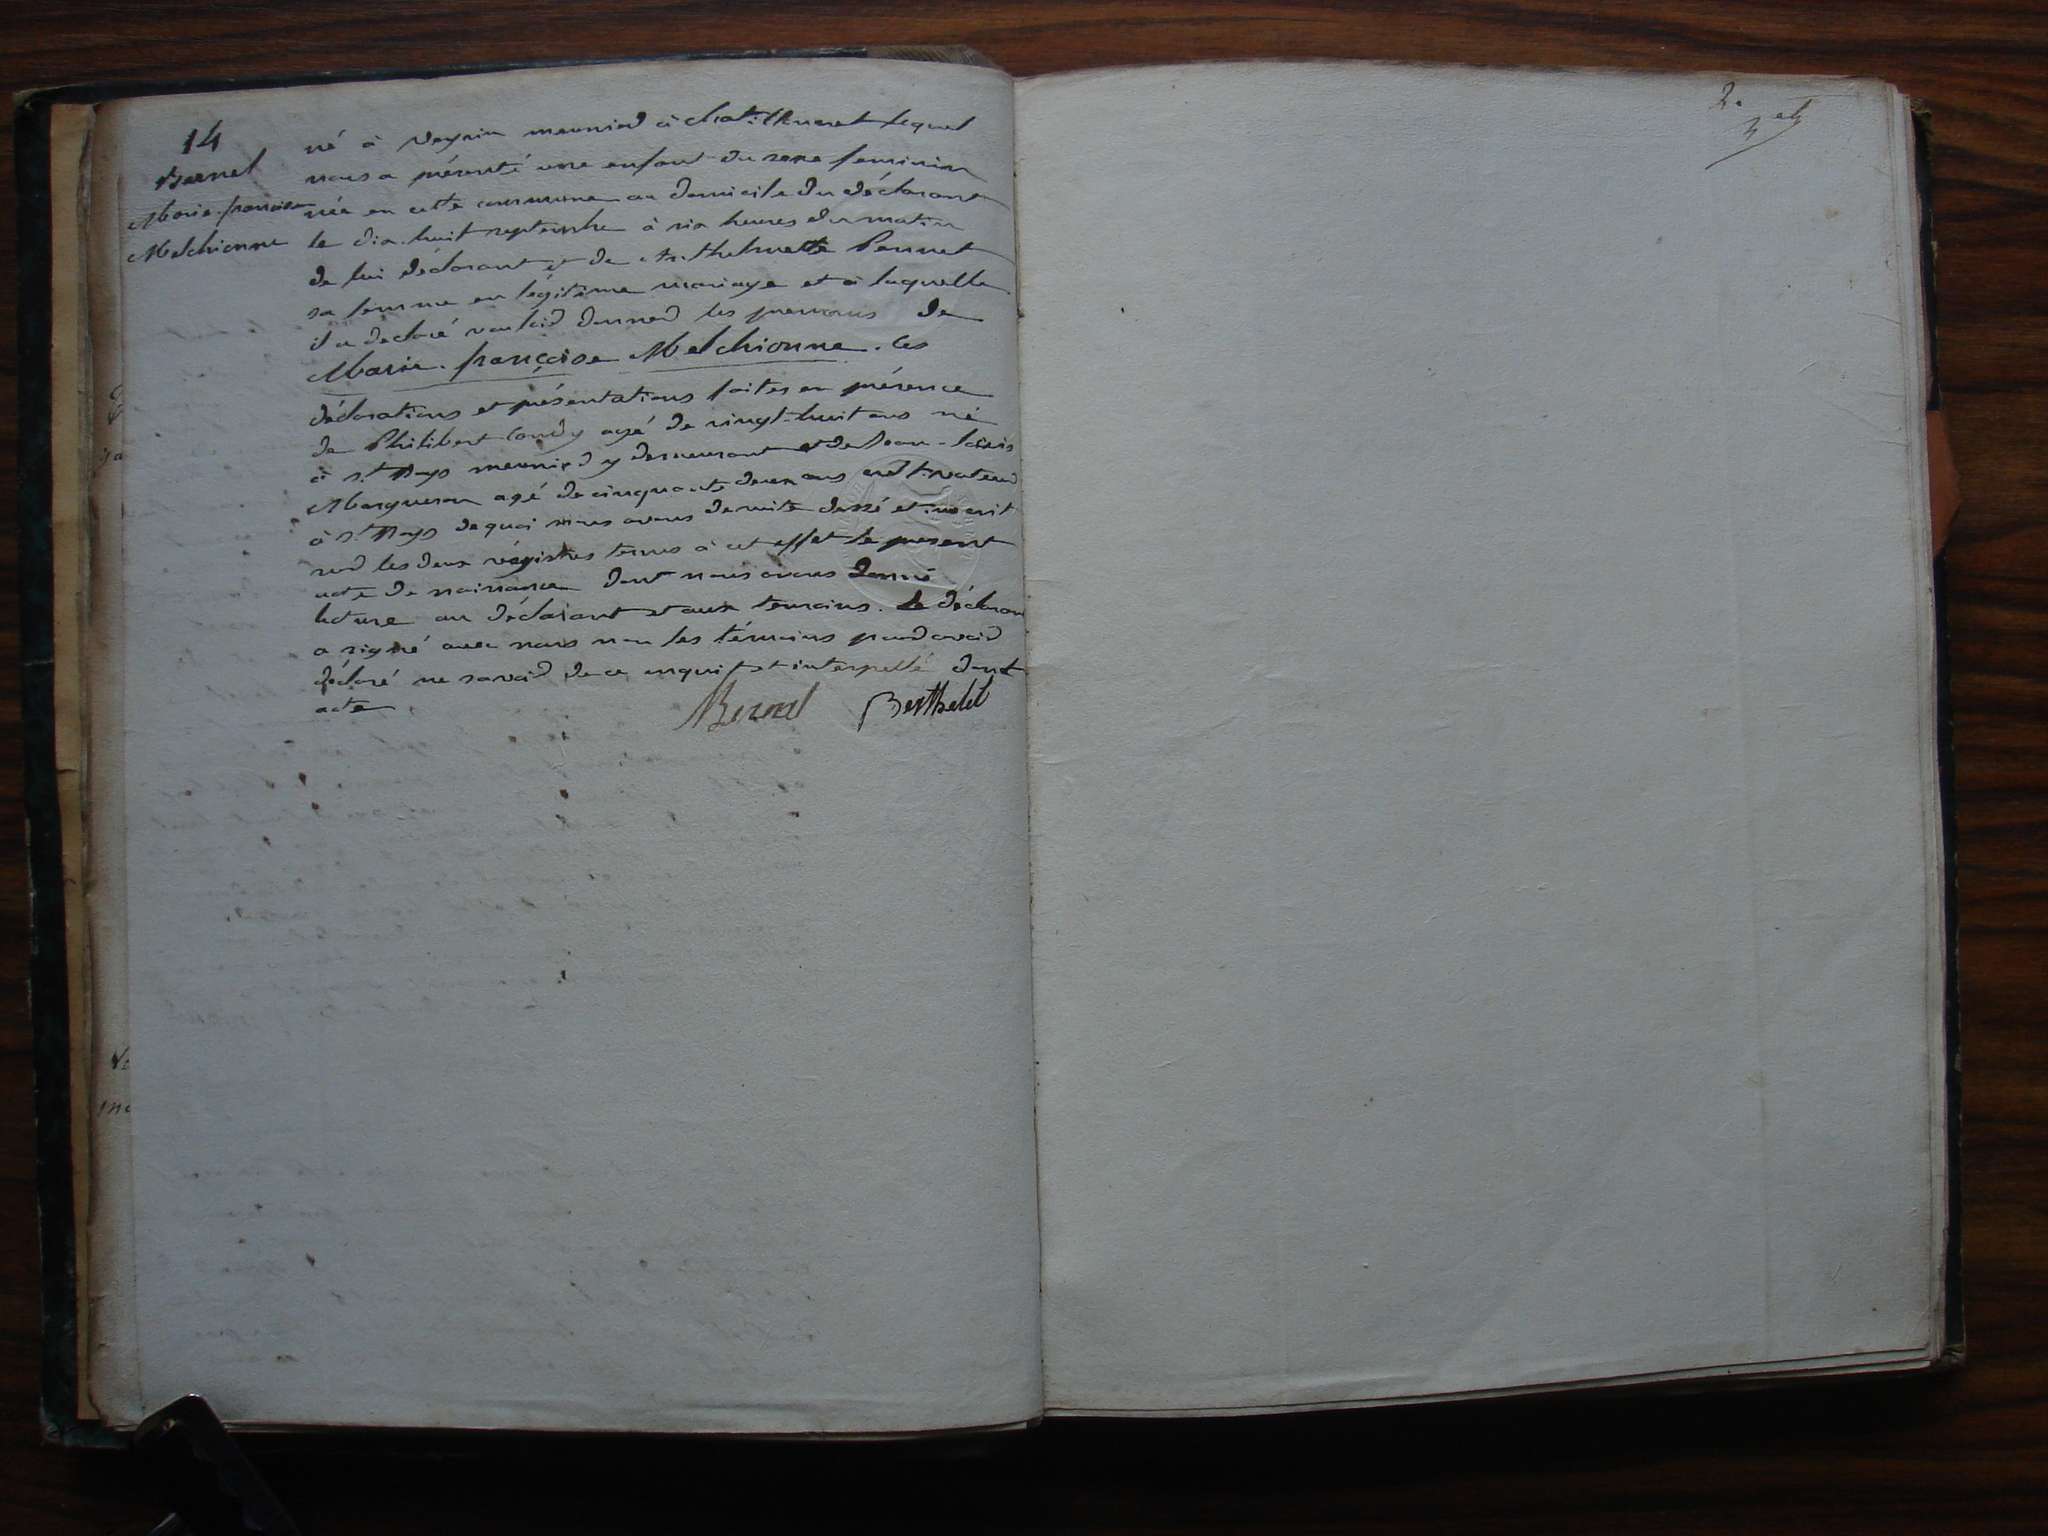 14
Bernel
Marie-françoise
Melchionne
né à Veyrin meunier à lequel
nous a présenté une enfant du sexe feminin
née en cette commune au domicile du déclarant
le dix-huit septembre à six heures du matin
de lui déclarant et de Anthelmette Pennet
sa femme en légitime mariage et à laquelle
il a déclaré vouloir donner les prenoms de
Marie-françoise Melchionne. Ces
déclarations et présentations faites en présence
de Philibert agé de vingt-huit ans né
à St. meunier y demeurant et de Jean-Louis
Margueron agé de cinquante deux ans cultivateur
à St. de quoi nous avons de suite dressé et inscrit
sur les deux régistres tenus à cet effet le present
acte de naissance dont nous avons donné
lecture au déclarant et aux temoins. Le déclarant
a signé avec nous non les témoins pour avoir
déclaré ne savoir de ce enquis et interpellé dont
acte
Bernel Berthelet